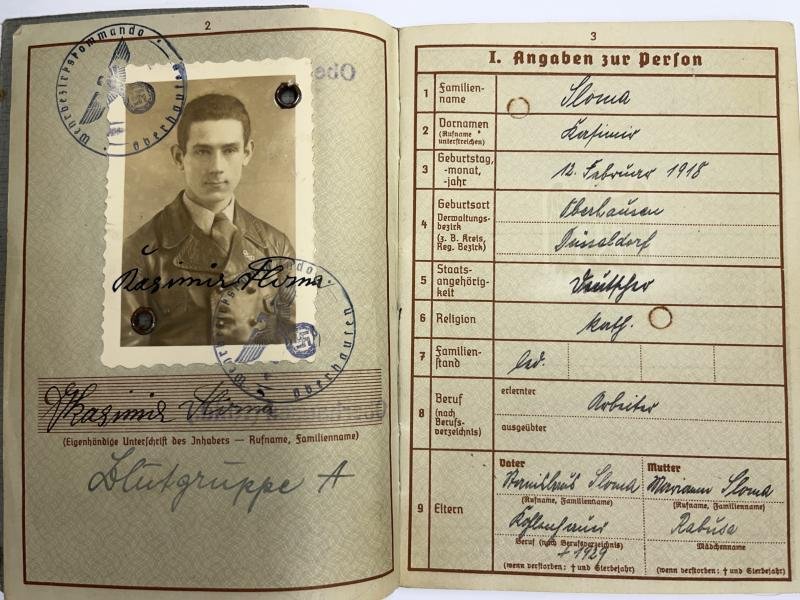 2
Wehrbezirkskommando
Oberhausen
Kasimir
Wehrbezirkskommando
Oberhausen
Kasimir
(Eigenhändige Unterschrift des Inhabers — Rufname, Familienname)
Blutgruppe A
3
I. Angaben zur Person
1 Familienname Sloma
2 Vornamen (Rufname unterstreichen) Kasimir
3 Geburtstag, -monat, -jahr 12. Februar 1918
4 Geburtsort Verwaltungsbezirk (z. B. Kreis, Reg. Bezirk) Oberhausen
Düsseldorf
5 Staatsangehörigkeit Deutscher
6 Religion kath.
7 Familienstand led.
8 Beruf (nach Berufsverzeichnis) erlernter Arbeiter
ausgeübter
9 Eltern
Vater Mutter
Stanislaus Sloma Mariann Sloma
(Rufname, Familienname) (Rufname, Familienname)
Kohlenhauer Rabusa
Beruf (nach Berufsverzeichnis) Mädchenname
† 1929
(wenn verstorben: † und Sterbejahr) (wenn verstorben: † und Sterbejahr)